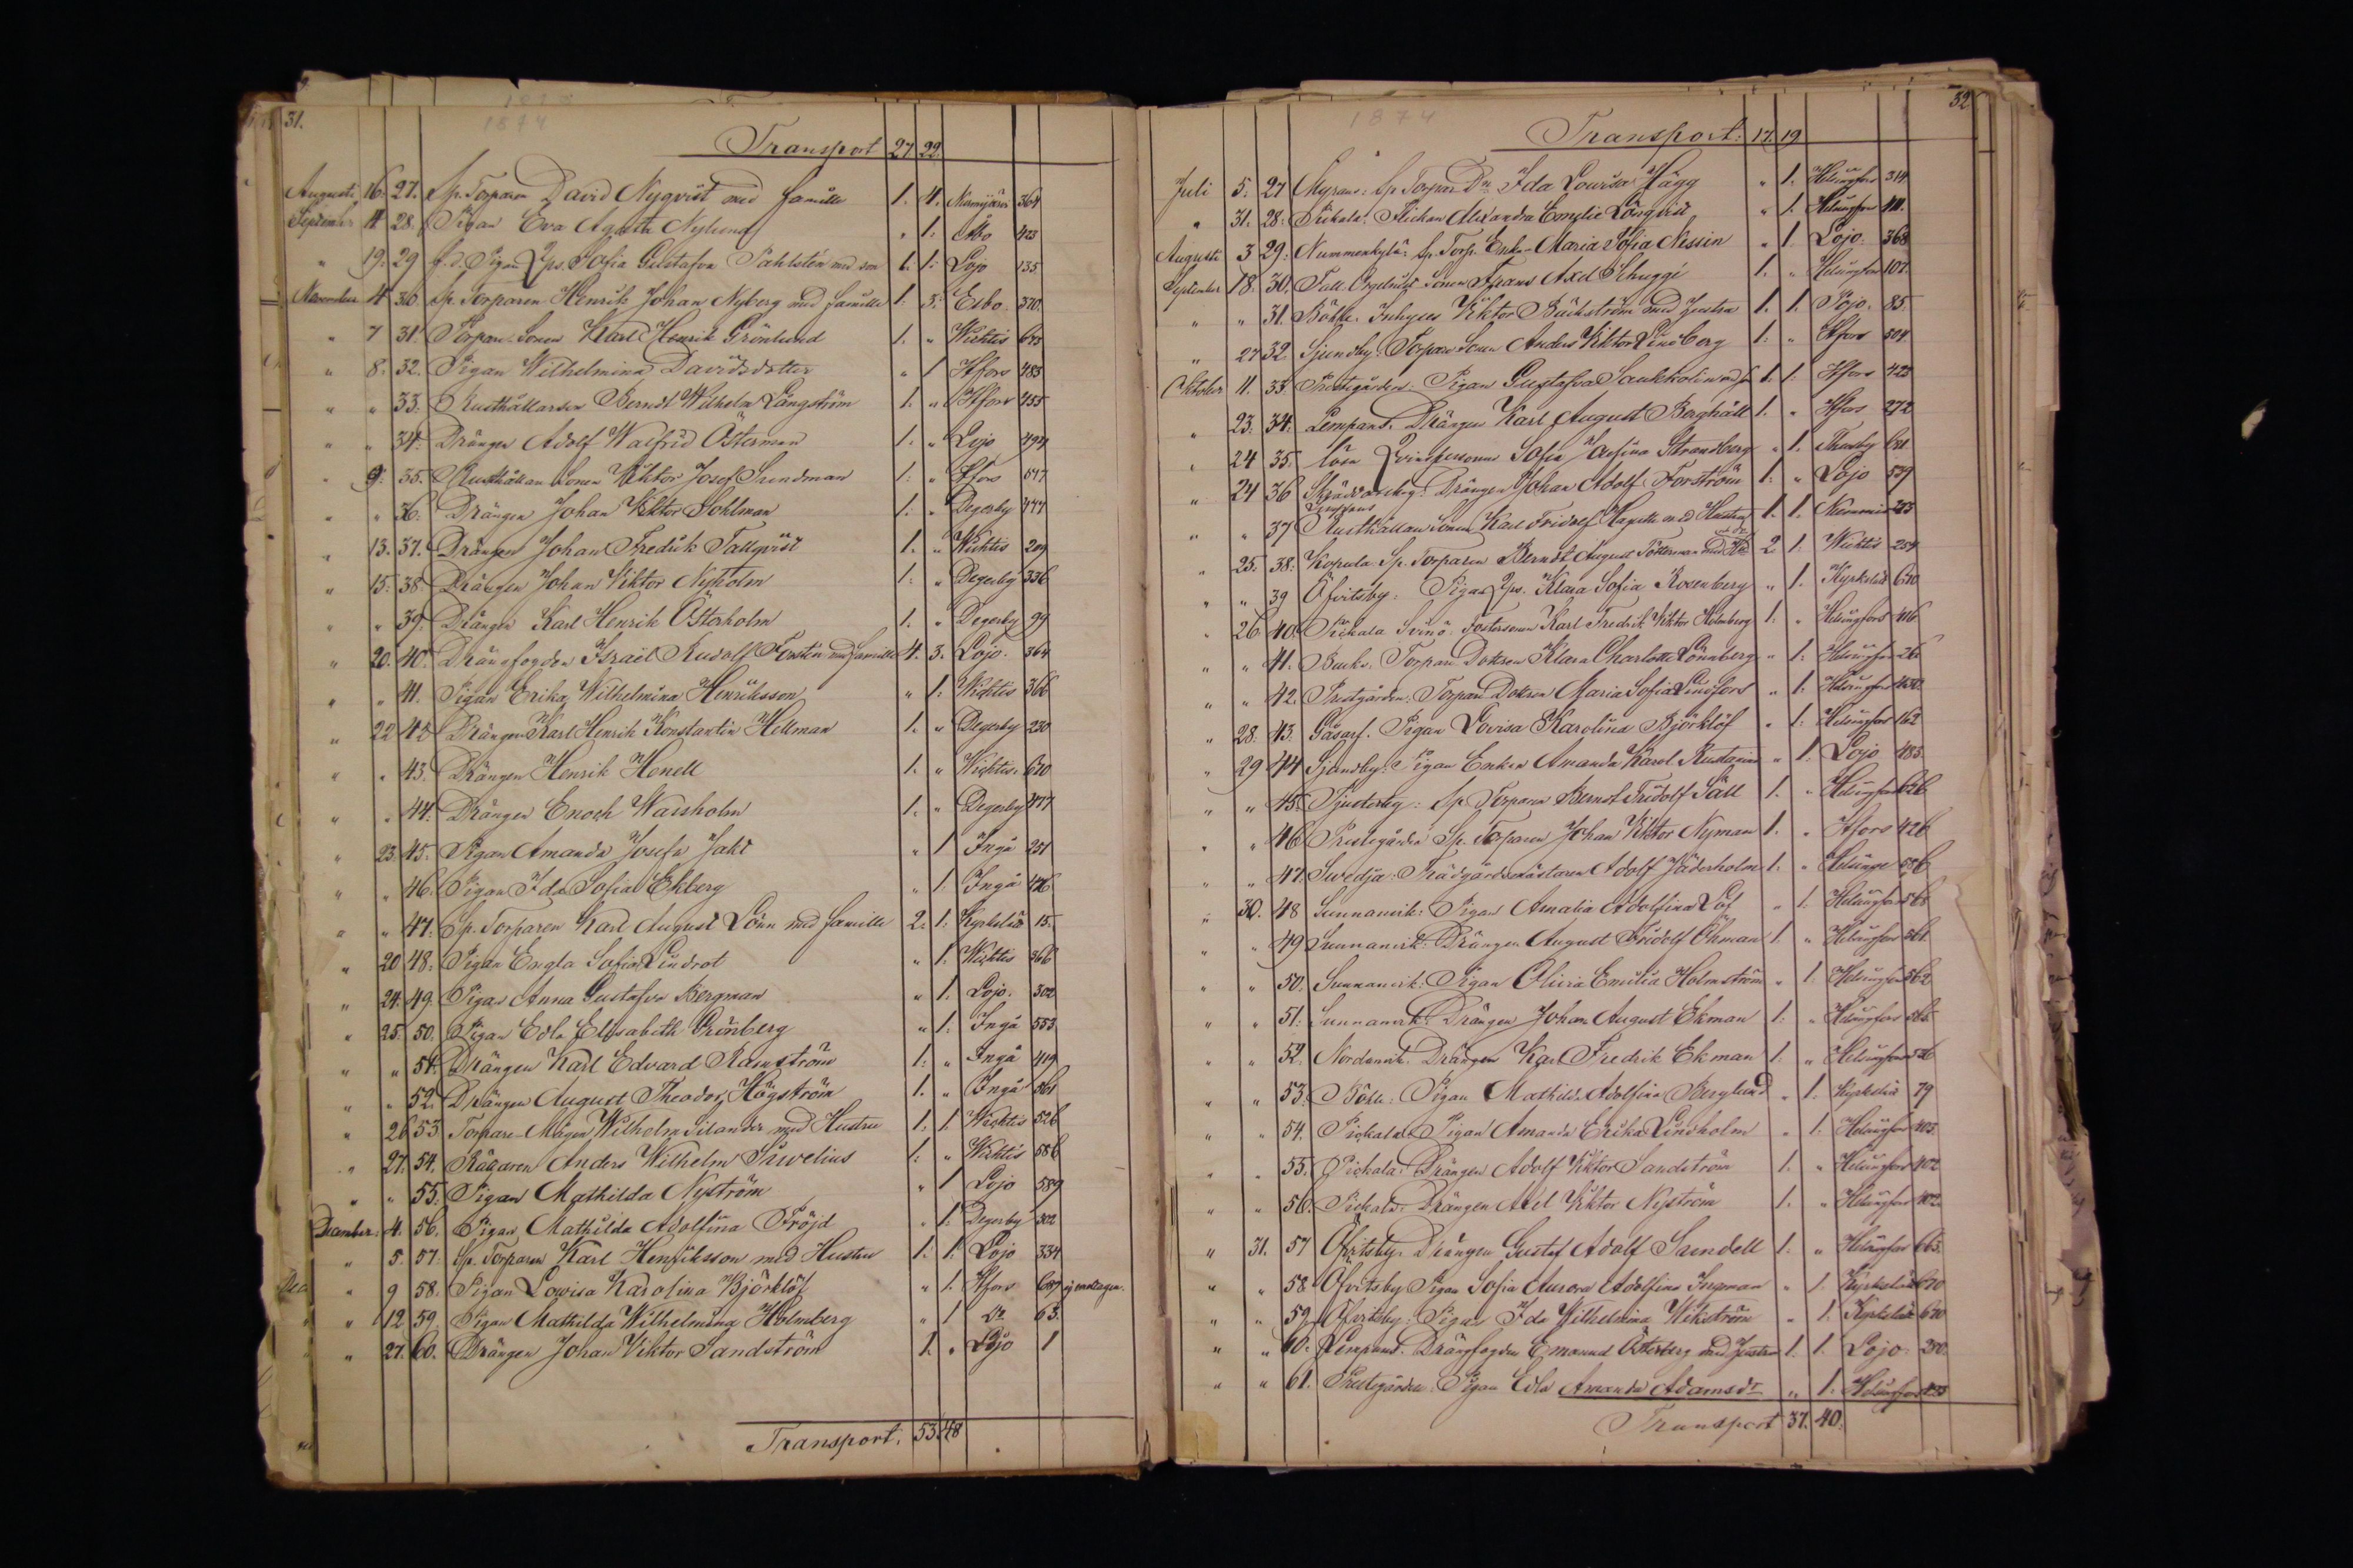 31.
1874
Transport 27 22.
Augusti 16. 27. Sp. Torparen David Nyqvist med familie 1. 4. 364
September 11 28. Pigan Eva Agatha Nylund " 1. Åbo 423
" 19. 29 f.d. Pigan Sofia Gustafva Dahlstén med son 1. 1. Lojo 135
November 4 30 Sp. Torparen Henrik Johan Nyberg med familie 1. 5. Esbo 370.
" 7 31. Torpare Sonen Karl Henrik Grönlund 1. " Wichtis 643
" 8. 32. Pigan Wilhelmina Davidsdotter " 1 Hfors 483
" " 33. Rusthållarsen Berndt Wilhelm Långström 1. " Hfors 455
" " 34. Drängen Adolf Walfrid Österman 1. " Lojo 494
" 9. 35. Rusthållare Sonen Viktor Josef Sundman 1. " Hfors 647
" " 36. Drängen Johan Viktor Sohlman 1. " Degerby 444
" 13. 37. Drängen Johan Fredrik Tallqvist 1. " Wichtis 209
" 15. 38. Drängen Johan Viktor Nyholm 1. " Degerby 336
" " 39. Drängen Karl Henrik Österholm 1. " Degerby 99
" 20. 40. Drängfogden Israël Rudolf Forstén med familie 4. 3. Lojo. 364
" " 41. Pigan Erika Wilhelmina Henriksson " 1. Wichtis 366
" 22 42 Drängen Karl Henrik Konstantin Hellman 1. " Degerby 230
" " 43. Drängen Henrik Honell 1. " Wichtis. 610
" " 44. Drängen Enoch Waisholm 1. " Degerby 477
" 23. 45. Pigan Amanda Josefa Jakt " 1 Ingå 251
" " 46. Pigan Ida Sofia Ekberg " 1. Ingå 476
" " 47. Sp. Torparen Karl August Lönn med familie 2. 1. Kyrkslät 15.
" 20 48. Pigan Engla Sofia Lindrot " 1. Wichtis 366
" 24. 49. Pigan Anna Gustafva Bergman " 1. Lojo. 302
" 25. 50. Pigan Edla Elisabeth Grönberg " 1. Ingå 553
" " 51. Drängen Karl Edvard Ramström 1. " Ingå 419
" " 52. Drängen August Theodor Högström 1. " Ingå 361
" 26 53 Torpare Mågen Wilhelm Silander med Hustru 1. 1. Wichtis 526
" 27. 54. Anders Wilhelm Siwelius 1. " Wichtis 586
" " 55. Pigan Mathilda Nyström " 1 Lojo 589
December. 4. 56. Pigan Mathilda Adolfina Fröjd " 1. Degerby 302
" 5. 57. Sp. Torparen Karl Henriksson med Hustru 1. 1. Lojo 334
" 9 58. Pigan Lowisa Karolina Björklöf " 1. Hfors 687
" 12 59. Pigan Mathilda Wilhelmina Holmberg " 1 Do 63.
" 27. 60. Drängen Johan Viktor Sandström 1. " Lojo 1
Transport. 53. 48
32
1874
Transport. 17. 19
Juli 5. 27 Myrans: Sp Torpar Dr. Ida Lovisa Hägg " 1. Helsingfors 314
" 31. 28. Pickala. Flickan Alexandra Emelie Lönqvist " 1. Helsingfors 411.
Augusti 3 29. Nummenkylä. Sp. Torp. Enka Maria Sofia Nissin " 1. Lojo. 368
September 18. 30. Sonen Frans Axel Schuggé 1. " Helsingfors 107.
" " 31. Böhle. Inhyses Viktor Bäckström med Hustru 1. 1. Pojo. 85.
" 27 32. Sjundby. Torpare Sonen Anders Viktor Lindberg 1. " Hfors 504
Oktober 11. 33. Prestgården. Pigan Gustafva Saukkolin 1. 1. Hfors 423
" 23. 34. Lempans. Drängen Karl August Berghäll 1. " Hfors 272
" 24 35. lösa Qvinspersonen Sofia Josefina Strandberg " 1. Thusby 611
" 24 36 Drängen Johan Adolf Forström 1. " Lojo 539
" " 37 Rusthållare Sonen Karl Fridolf med Hustru 1. 1. Nummis 23
" 25. 38. Kopula. Sp. Torparen Berndt August Fötterman 2. 1. Wichtis 254
" " 39 Öfvitsby. Pigan Klara Sofia Rosenberg " 1. Kyrkslät 670
" 26. 40. Pickala Svinö. Fostersonen Karl Fredrik Viktor Holmberg 1. " Helsingfors 416
" " 41. Backs. Torpare Dottren Klara Charlotta Lönnberg " 1. Helsingfors 26
" " 42. Prestgården. Torpare Dottren Maria Sofia Lindfors " 1. Helsingfors 430.
" 28. 43. Gåsarf. Pigan Lovisa Karolina Björklöf " 1. Helsingfors 162
" 29 44 Sjundby. Pigan Enkan Amanda Karol. " 1. Lojo 483.
" " 45. Sjusterby: Sp Torparen Bernst Fridolf Säll 1. " Helsingfors 626
" " 46 Prestegården Sp. Torparen Johan Viktor Nyman 1. " Hfors 426
" " 47. Svedja: Trädgårdsmästaren Adolf Jäderholm 1. " Helsinge 596
" 30. 48 Sunnanvik: Pigan Amalia Adolfina Löf " 1. Helsingfors 568
" " 49 Sunnanvik: Drängen August Fridolf Öhman 1. " Helsingfors 561
" " 50. Sunnanvik: Pigan Olivia Emilia Holmström " 1. Helsingfors 562
" " 51. Sunnanvik. Drängen Johan August Ekman 1. " Helsingfors 565
" " 52. Nordanvik. Drängen Karl Fredrik Ekman 1. " Helsingfors 526
" " 53. Böhle: Pigan Mathilda Adolfina Berglund " 1. Kyrkslät 79
" " 54. Pickala. Pigan Amanda Erika Lindholm " 1. Helsingfors 405.
" " 55. Pickala. Drängen Adolf Viktor Sandström 1. " Helsingfors 402
" " 56. Pickala. Drängen Axel Viktor Nyström 1. " Helsingfors 402
" 31. 57 Öfvitsby. Drängen Gustaf Adolf Sundell 1. " Helsingfors 665.
" " 58 Öfvitsby Pigan Sofia Aurora Adolfina Ingman " 1. Kyrkslät 670
" " 59. Öfvitsby. Pigan Ida Wilhelmina Wikström " 1. Kyrkslät 670
" " 60. Lempans. Drängfogden Emanuel Österberg med Hustru 1. 1. Lojo. 270.
" " 61. Prestegården. Pigan Edla Amanda Adamsdr " 1. Helsingfors 423
Transport 37. 40.